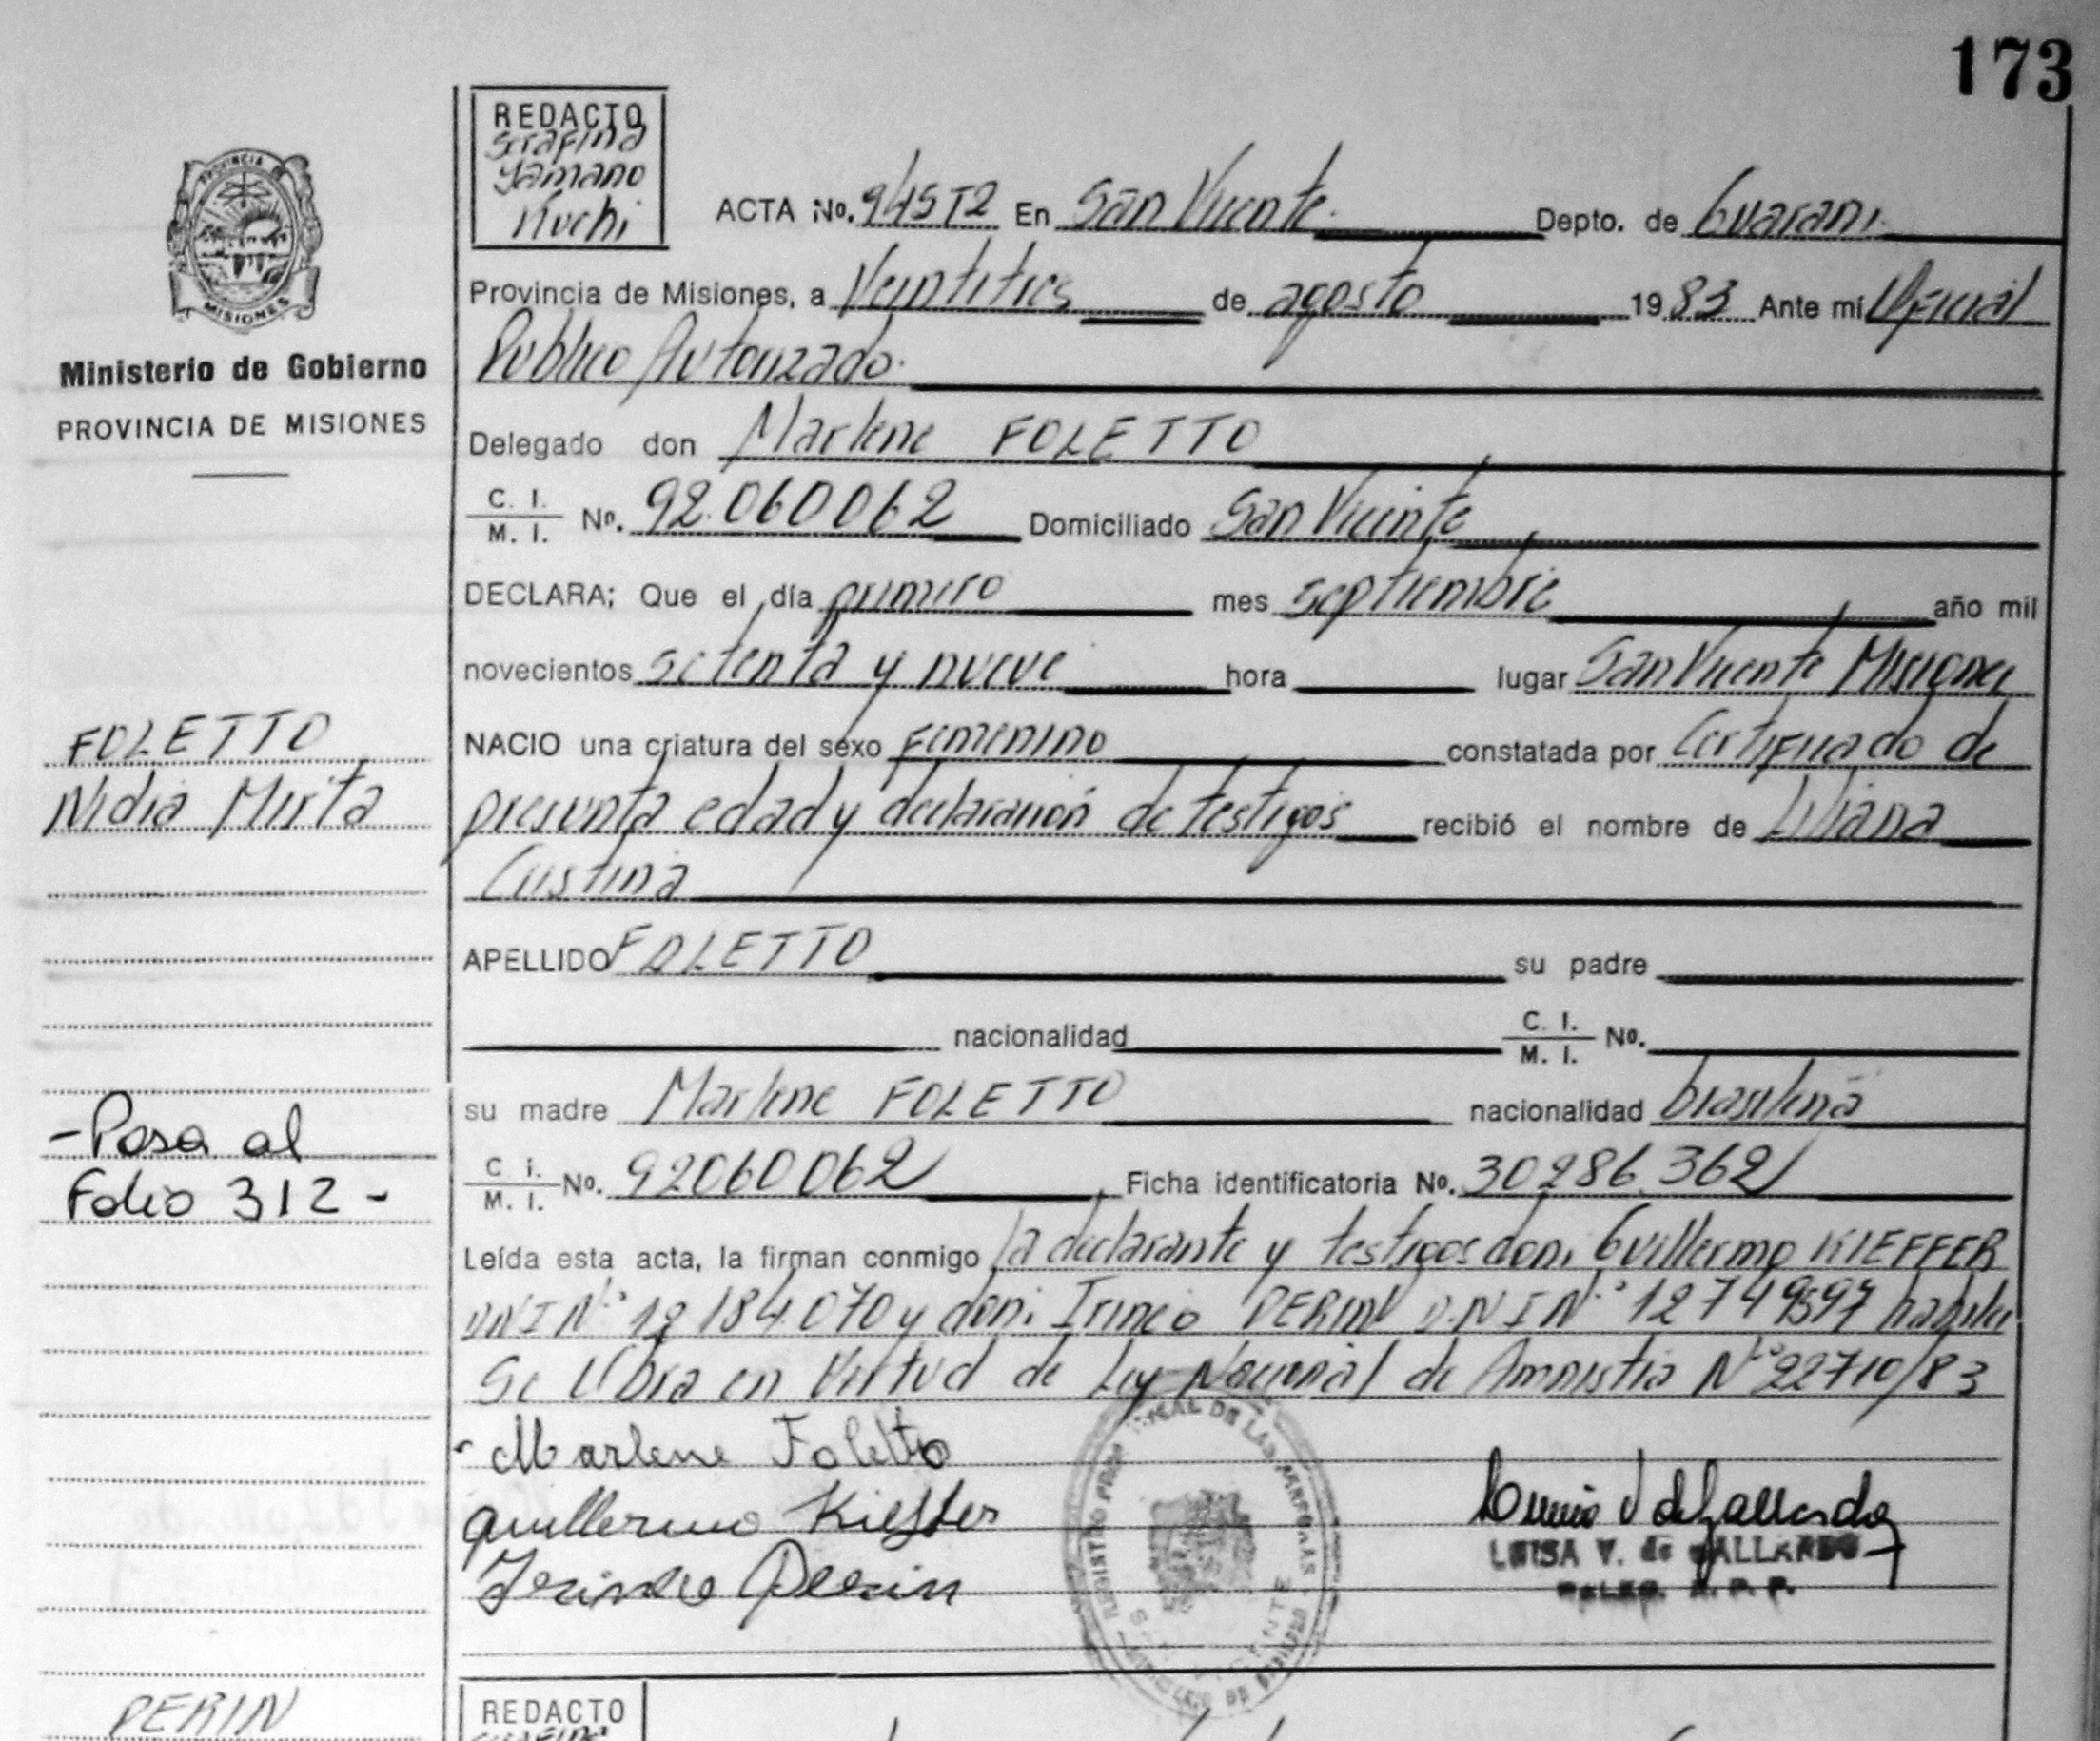 173
REDACTO
Serafina
Yamano
Kuchi
PROVINCIA
MISIONES
Ministerio de Gobierno
PROVINCIA DE MISIONES
ACTA No. 945T2 En San Vicente. Depto. de Guarani.
Provincia de Misiones, a Veintitres de agosto 1983 Ante mí Oficial
Publico Autorizado.
Delegado don Marlene FOLETTO
C. I. / M. I. No. 92.060062 Domiciliado San Vicente
DECLARA; Que el día primero mes septiembre año mil
novecientos setenta y nueve hora lugar San Vicente Misiones
FOLETTO
Nidia Mirta
NACIO una criatura del sexo femenino constatada por Certificado de
presunta edad y declaración de testigos recibió el nombre de Liliana
Cristina
APELLIDO FOLETTO su padre
nacionalidad C. I. / M. I. No.
su madre Marlene FOLETTO nacionalidad brasileña
-Pasa al
Folio 312-
C i. / M. I. No. 92060062 Ficha identificatoria No. 30286.362
Leída esta acta, la firman conmigo la declarante y testigos don: Guillermo KIEFFER
DNI Nº 12184.070 y don: Irineo PERIN D.N I Nº 12749597 habiles
Se Libra en Virtud de Ley Nacional de Amnistia Nº 22710/83
- Marlene Foletto
Guillermo Kieffer
Irineo Perin
LUISA V. de GALLARDO
DELEG. R. P. P.
PERIN
REDACTO